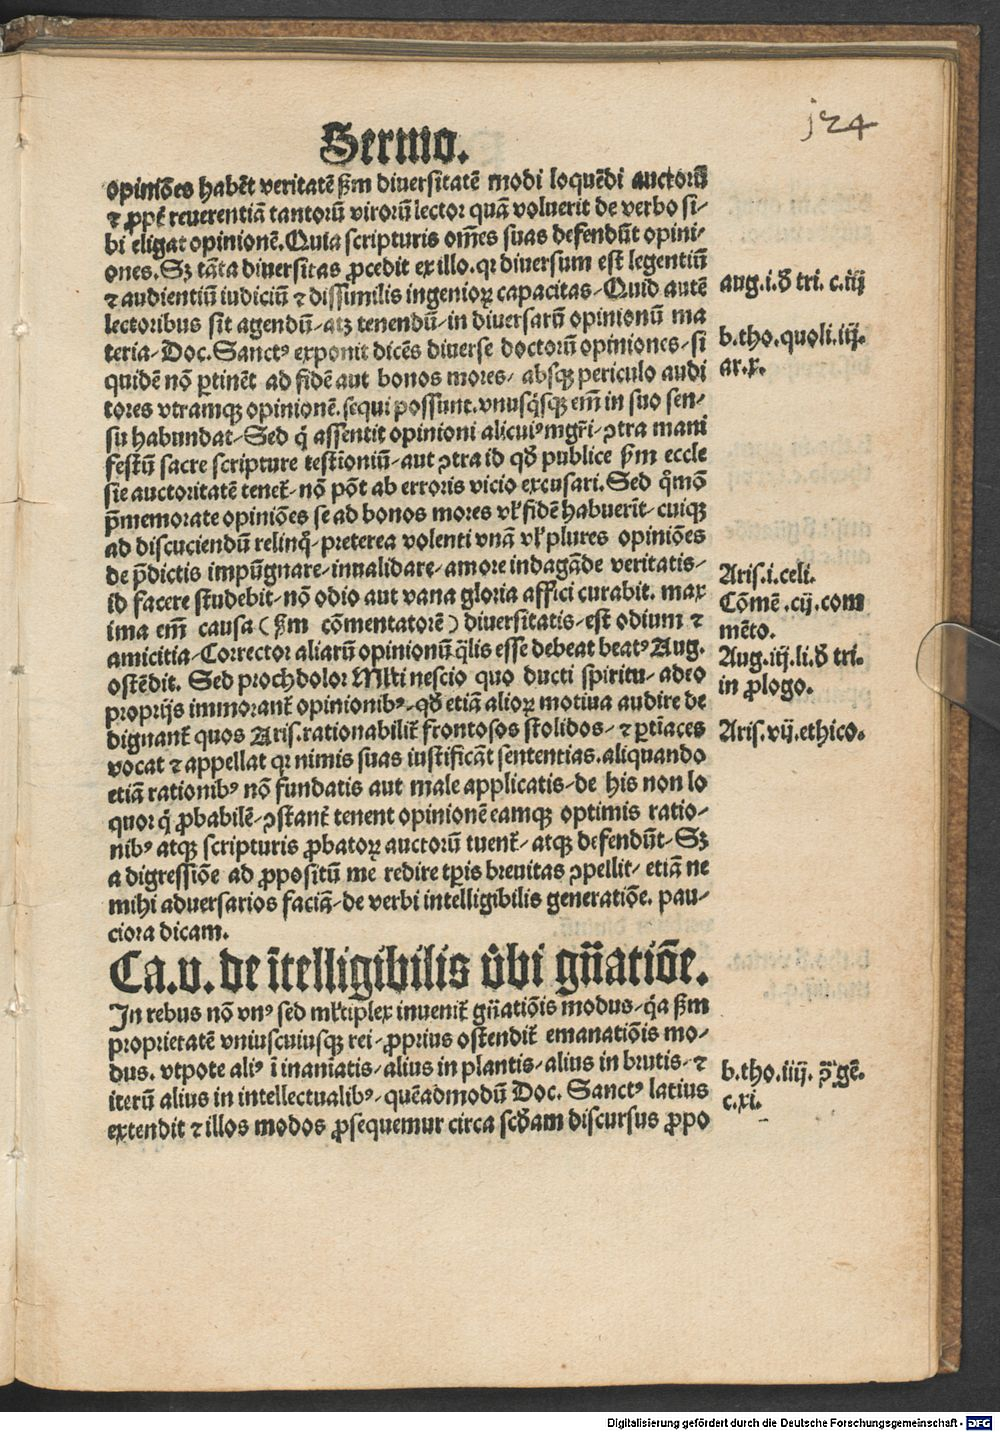 124
Sermo.
opiniões habẽt veritatẽ ẞm diuersitatẽ modi loquẽdi auctorũ
⁊ ꝓpt̃ reuerentiã tantorũ virorũ lector quã voluerit de verbo si⸗
bi eligat opinionẽ. Quia scripturis om̃es suas defendũt opini⸗
ones. Sꝫ tãta diuersitas ꝓcedit ex illo. qꝛ diuersum est legentiũ
⁊ audientiũ iudiciũ ⁊ dissimilis ingenioꝝ capacitas⸗ Quid autẽ
lectoribus sit agendũ⸗ atꝫ tenendũ⸗ in diuersarũ opinionũ ma
teria⸗ Doc. Sanctꝰ exponit dicẽs diuerse doctorũ opiniones⸗ si
quidẽ nõ ꝑtinẽt ad fidẽ aut bonos mores⸗ absqꝫ periculo audi
tores vtramqꝫ opinionẽ. sequi possunt. vnusq̃sqꝫ em̃ in suo sen⸗
su habundat⸗ Sed q̃ assentit opinioni alicuiꝰ mgr̃i⸗ ꝯtra mani
festũ sacre scripture testĩoniũ⸗ aut ꝯtra id qð publice ẞm eccle
sie auctoritatẽ tenet̃⸗ nõ põt ab erroris vicio excusari. Sed q̃mõ
p̃memorate opiniões se ad bonos mores vꝉ fidẽ habuerĩt⸗ cuiqꝫ
ad discuciendũ relinq̃⸗ preterea volenti vnã vꝉ plures opiniões
de p̃dictis impũgnare⸗ inualidare⸗ amore indagãde veritatis⸗
id facere studebit⸗ nõ odio aut vana gloria affici curabit. max
ima em̃ causa (ẞm cõmentatorẽ) diuersitatis⸗ est odium ⁊
amicitia⸗ Corrector aliarũ opinionũ q̃lis esse debeat beatꝰ Aug.
ostẽdit. Sed prochdolor Mꝉti nescio quo ducti spiritu⸗ adeo
proprijs immorant̃ opinionibꝰ⸗ qð etiã alioꝝ motiua audire de
dignant̃ quos Aris. rationabilit̃ frontosos stolidos⸗ ⁊ ꝑtĩaces
vocat ⁊ appellat qꝛ nimis suas iustificãt sententias. aliquando
etiã rationibꝰ nõ fundatis aut male applicatis⸗ de his non lo
quoꝛ q̃ ꝓbabilẽ⸗ ꝯstant̃ tenent opinionẽ eamqꝫ optimis ratio⸗
nibꝰ atqꝫ scripturis ꝓbatoꝝ auctorũ tuent̃⸗ atqꝫ defendũt⸗ Sꝫ
a digressiõe ad ꝓpositũ me redire tꝑis breuitas ꝯpellit⸗ etiã ne
mihi aduersarios faciã⸗ de verbi intelligibilis generatiõe. pau⸗
ciora dicam.
Ca. v. de ĩtelligibilis v̓bi gñatiõe.
In rebus nõ vnꝰ sed mꝉtiplex inuenit̃ gñatiõis modus⸗ q̃a ẞm
proprietatẽ vniuscuiusqꝫ rei⸗ ꝓprius ostendit̃ emanatiõis mo⸗
dus. vtpote aliꝰ ĩ inanĩatis⸗ alius in plantis⸗ alius in brutis⸗ ⁊
iterũ alius in intellectualibꝰ⸗ quẽadmodũ Doc. Sanctꝰ latius
extendit ⁊ illos modos ꝓsequemur circa scðam discursus ꝓpo
aug. i. ð tri. c. iiij
b. tho. quoli. iij.
ar. x.
Aris. i. celi.
Cõmẽ. cij. com
mẽto.
Aug. iij. li. ð tri.
in ꝓlogo.
Aris. vij. ethico.
b. tho. iiij. ꝯ̃ gẽ.
c. xi.
Digitalisierung gefördert durch die Deutsche Forschungsgemeinschaft - DFG